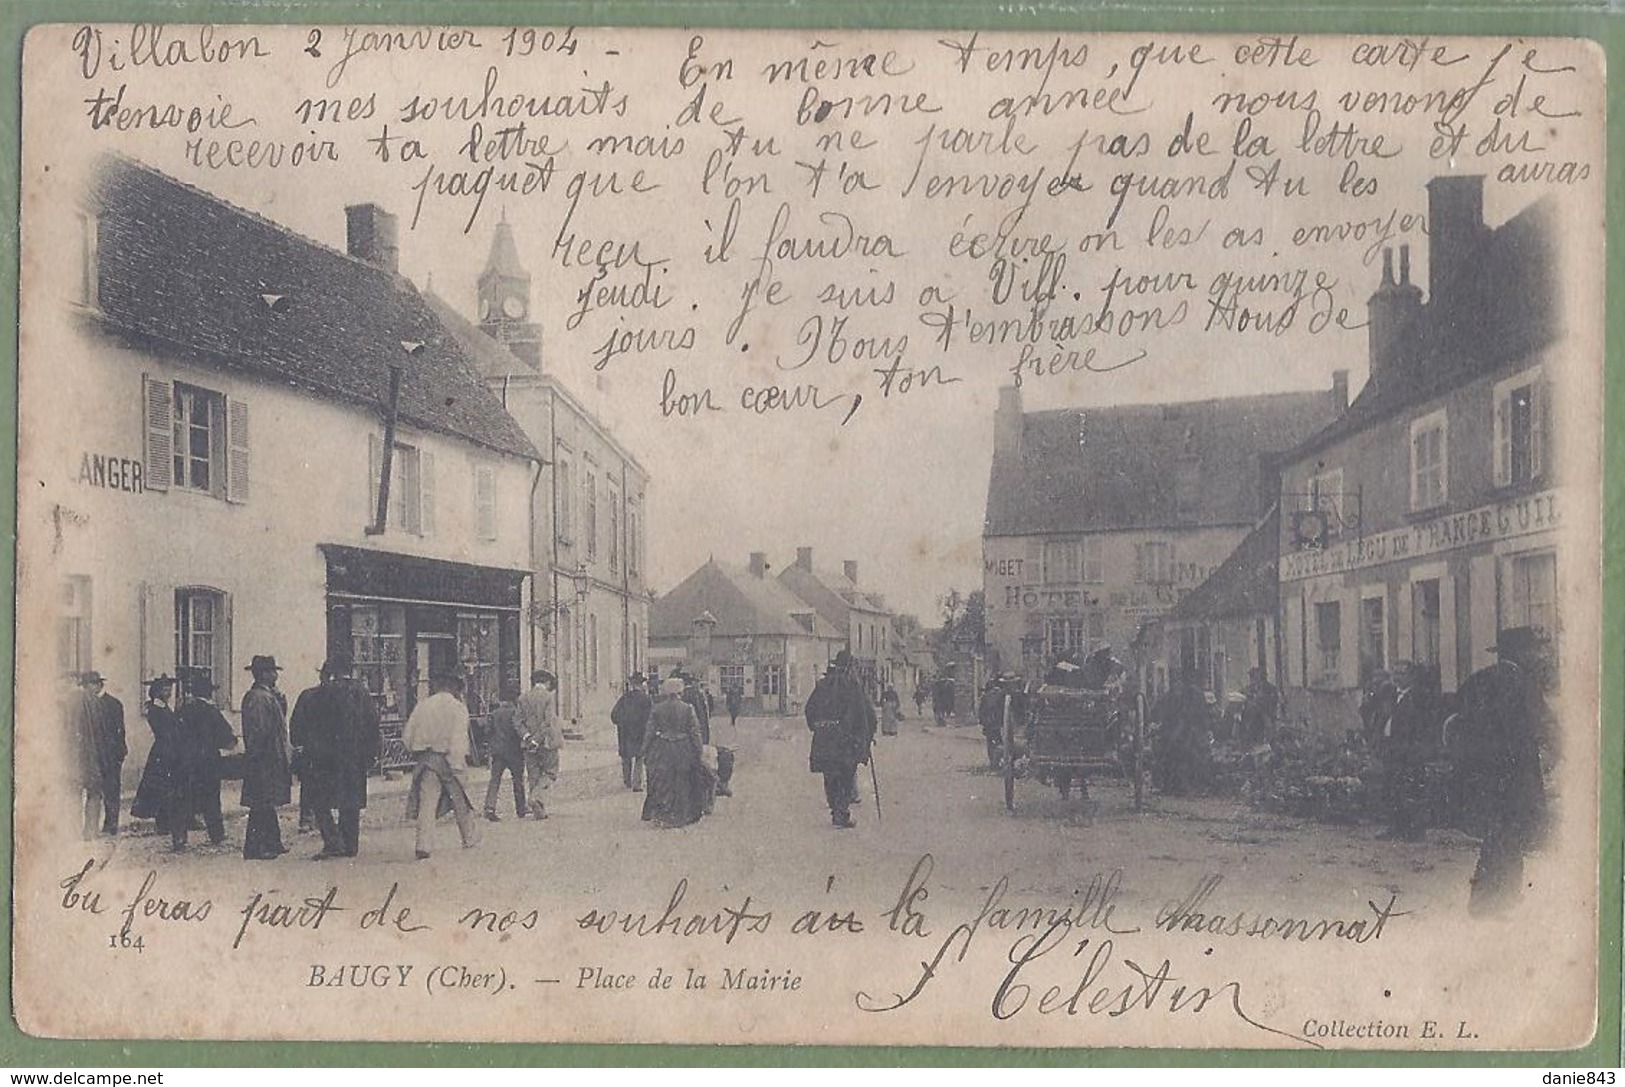 Villabon 2 Janvier 1904 - En même temps, que cette carte je
t'envoie mes souhouaits de bonne année nous venons de
recevoir ta lettre mais tu ne parle pas de la lettre et du
paquet que l'on t'a envoyer quand tu les auras
reçu il faudra écrire on les as envoyer
jeudi. Je suis a Vill. pour quinze
jours. Nous t'embrassons tous de
bon cœur, ton frère
ANGER
WGET
HÔTEL DE LA
HÔTEL DE L'ÉCU DE FRANCE GUIL
Tu feras part de nos souhaits à la famille Massonnat
164
BAUGY (Cher). — Place de la Mairie
Célestin
Collection E. L.
delcampe.net
danie843